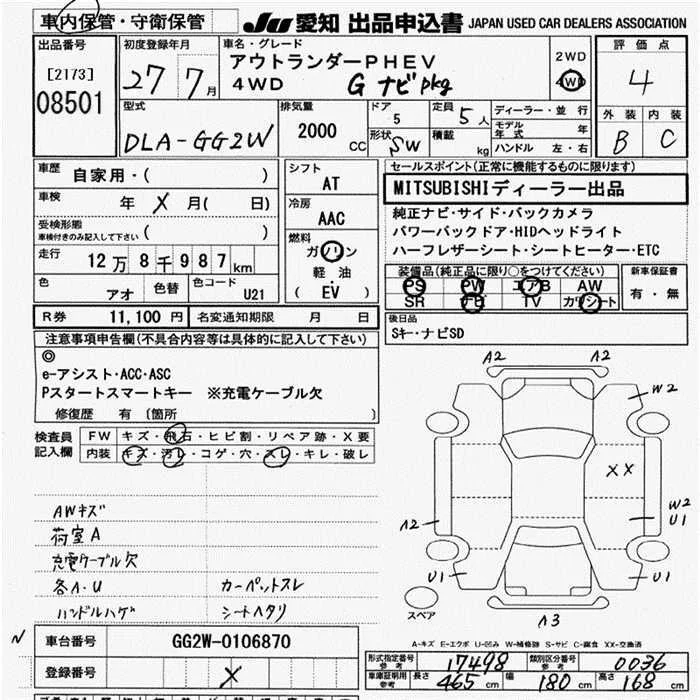 車内保管・守衛保管
JU 愛知 出品申込書 JAPAN USED CAR DEALERS ASSOCIATION
出品番号
[2173]
08501
初度登録年月
27 7月
車名・グレード
アウトランダーPHEV
4WD G ナビpkg
2WD
4WD
評価点
4
外装 内装
B C
型式
DLA-GG2W
排気量
2000 CC
ドア
5
形状 SW
定員 5人
積載 kg
ディーラー・並行
モデル年式 年
ハンドル 左・右
車歴
自家用・( )
車検
年 X 月( 日)
受検形態
車検付きのみ記入して下さい ( )
走行
12万8千987km
色
アオ
色替
色コード
U21
シフト
AT
冷房
AAC
燃料
ガソリン
軽油
( EV )
セールスポイント(正常に機能するものに限ります)
MITSUBISHIディーラー出品
純正ナビ・サイド・バックカメラ
パワーバックドア・HIDヘッドライト
ハーフレザーシート・シートヒーター・ETC
装備品(純正品に限り○をつけてください)
PS PW エアB AW
SR ナビ TV カワシート
新車保証書
有・無
R券 11,100 円
名変通知期限 月 日
後日品
Sキー・ナビSD
注意事項申告欄(不具合内容等は具体的に記入して下さい)
◎
e-アシスト・ACC・ASC
Pスタートスマートキー ※充電ケーブル欠
修復歴 有 〔箇所 〕
検査員記入欄
FW キズ・飛石・ヒビ割・リペア跡・X要
内装 キズ・汚レ・コゲ・穴・スレ・キレ・破レ
AWキズ
荷室A
充電ケーブル欠
各A・U カーペットスレ
ハンドルハゲ シートヘタリ
A2 A2
W2
XX
A2
W2
U1
U1 U1
スペア
A3
A-キズ E-エクボ U-凹み W-補修跡 S-サビ C-腐食 XX-交換済
N
車台番号 GG2W-0106870
登録番号 X
形式指定番号 参考 17498
類別区分番号 参考 0036
車庫証明用参考 長さ 465 cm 幅 180 cm 高さ 168 cm